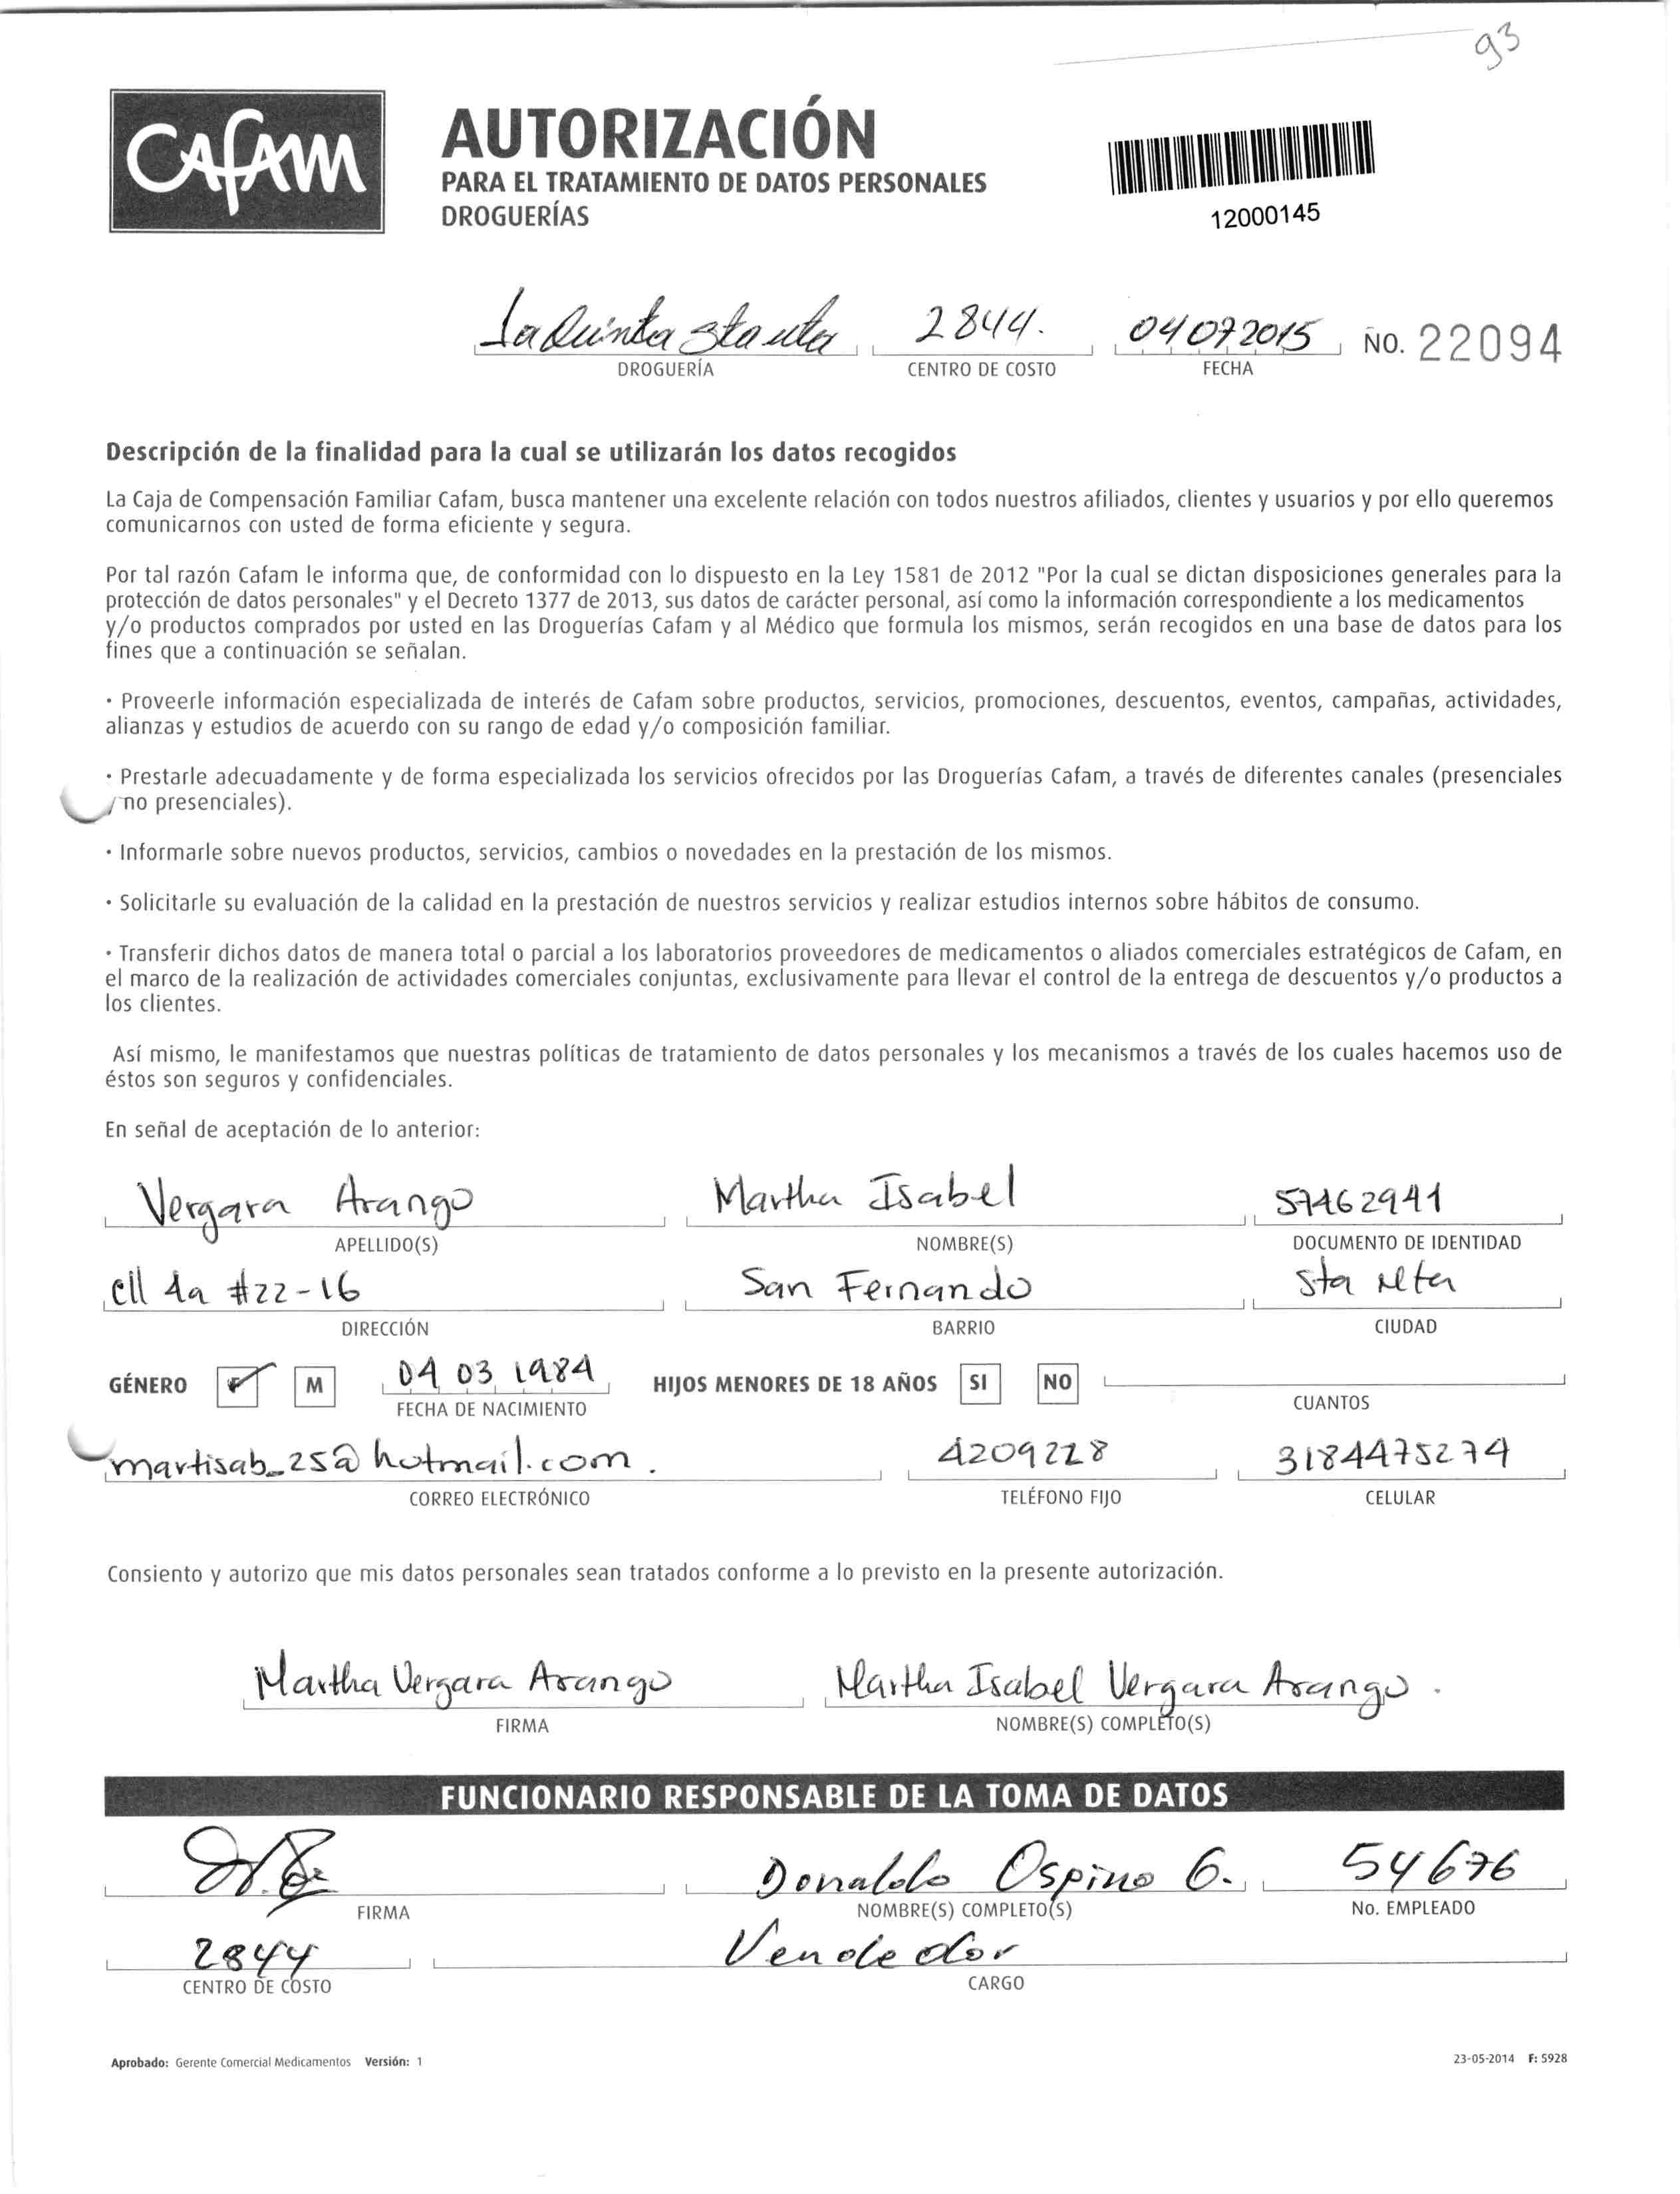 93
CAFAM
AUTORIZACIÓN
PARA EL TRATAMIENTO DE DATOS PERSONALES
DROGUERÍAS
12000145
La Quinta Sta 2844. 04 07 2015 NO. 22094
DROGUERÍA CENTRO DE COSTO FECHA
Descripción de la finalidad para la cual se utilizarán los datos recogidos
La Caja de Compensación Familiar Cafam, busca mantener una excelente relación con todos nuestros afiliados, clientes y usuarios y por ello queremos
comunicarnos con usted de forma eficiente y segura.
Por tal razón Cafam le informa que, de conformidad con lo dispuesto en la Ley 1581 de 2012 "Por la cual se dictan disposiciones generales para la
protección de datos personales" y el Decreto 1377 de 2013, sus datos de carácter personal, así como la información correspondiente a los medicamentos
y/o productos comprados por usted en las Droguerías Cafam y al Médico que formula los mismos, serán recogidos en una base de datos para los
fines que a continuación se señalan.
· Proveerle información especializada de interés de Cafam sobre productos, servicios, promociones, descuentos, eventos, campañas, actividades,
alianzas y estudios de acuerdo con su rango de edad y/o composición familiar.
· Prestarle adecuadamente y de forma especializada los servicios ofrecidos por las Droguerías Cafam, a través de diferentes canales (presenciales
/ no presenciales).
· Informarle sobre nuevos productos, servicios, cambios o novedades en la prestación de los mismos.
· Solicitarle su evaluación de la calidad en la prestación de nuestros servicios y realizar estudios internos sobre hábitos de consumo.
· Transferir dichos datos de manera total o parcial a los laboratorios proveedores de medicamentos o aliados comerciales estratégicos de Cafam, en
el marco de la realización de actividades comerciales conjuntas, exclusivamente para llevar el control de la entrega de descuentos y/o productos a
los clientes.
Así mismo, le manifestamos que nuestras políticas de tratamiento de datos personales y los mecanismos a través de los cuales hacemos uso de
éstos son seguros y confidenciales.
En señal de aceptación de lo anterior:
Vergara Arango Martha Isabel 57462941
APELLIDO(S) NOMBRE(S) DOCUMENTO DE IDENTIDAD
cll 4a #22-16 San Fernando Sta Mta
DIRECCIÓN BARRIO CIUDAD
GÉNERO F M 04 03 1984 HIJOS MENORES DE 18 AÑOS SI NO
FECHA DE NACIMIENTO CUANTOS
martisab_25@hotmail.com. 4209228 3184475274
CORREO ELECTRÓNICO TELÉFONO FIJO CELULAR
Consiento y autorizo que mis datos personales sean tratados conforme a lo previsto en la presente autorización.
Martha Vergara Arango Martha Isabel Vergara Arango.
FIRMA NOMBRE(S) COMPLETO(S)
FUNCIONARIO RESPONSABLE DE LA TOMA DE DATOS
Donaldo Ospino G. 54676
FIRMA NOMBRE(S) COMPLETO(S) No. EMPLEADO
2844 Vendedor
CENTRO DE COSTO CARGO
Aprobado: Gerente Comercial Medicamentos Versión: 1 23-05-2014 F: 5928